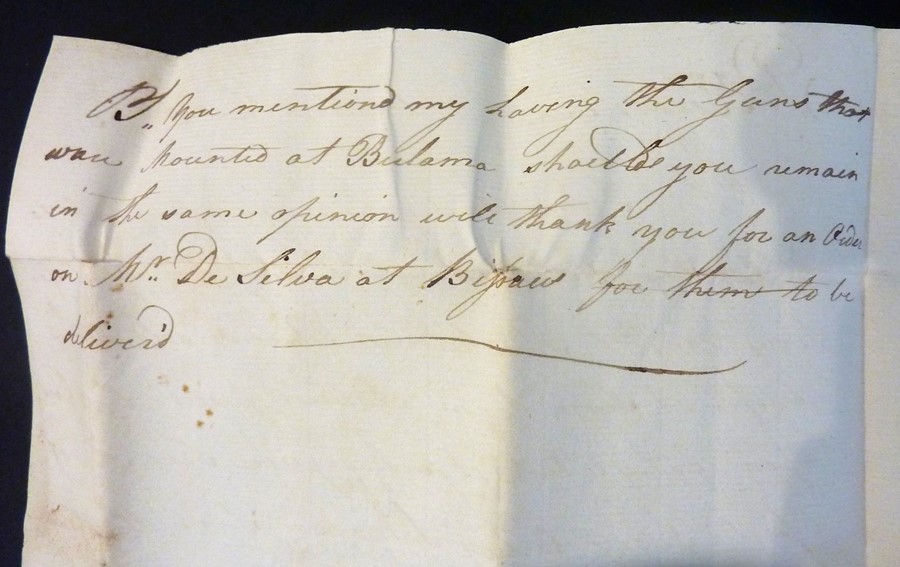 PS,, You mention'd my having the Guns that
ware Mounted at Bulama should you remain
in the same opinion will thank you for an Order
on Mr. De Silva at Bissaw for them to be
deliver'd